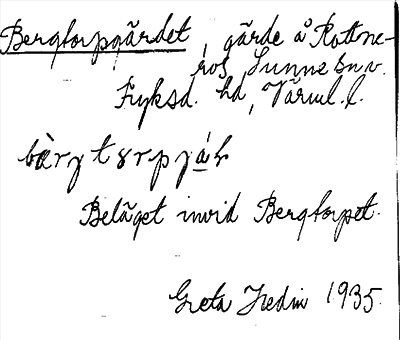 Bergtorpgärdet, gärde å Rottne-
ros, Sunne sn v.
Fryksd. hd, Värml. l.
Beläget invid Bergtorpet.
Greta Hedin 1935.